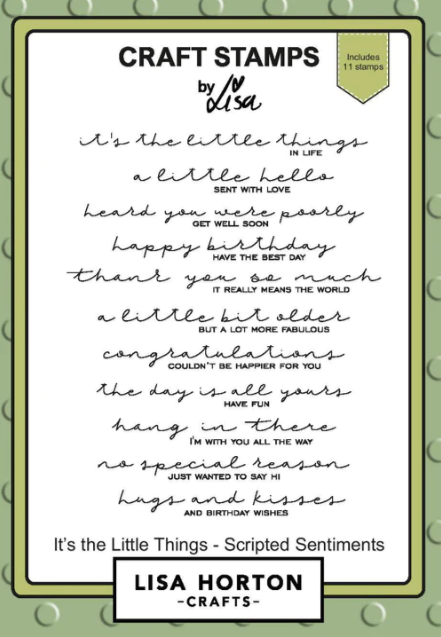 CRAFT STAMPS
by Lisa
Includes
11 stamps
it's the little things
IN LIFE
a little hello
SENT WITH LOVE
heard you were poorly
GET WELL SOON
happy birthday
HAVE THE BEST DAY
thank you so much
IT REALLY MEANS THE WORLD
a little bit older
BUT A LOT MORE FABULOUS
congratulations
COULDN'T BE HAPPIER FOR YOU
the day is all yours
HAVE FUN
hang in there
I'M WITH YOU ALL THE WAY
no special reason
JUST WANTED TO SAY HI
hugs and kisses
AND BIRTHDAY WISHES
It's the Little Things - Scripted Sentiments
LISA HORTON
-CRAFTS-